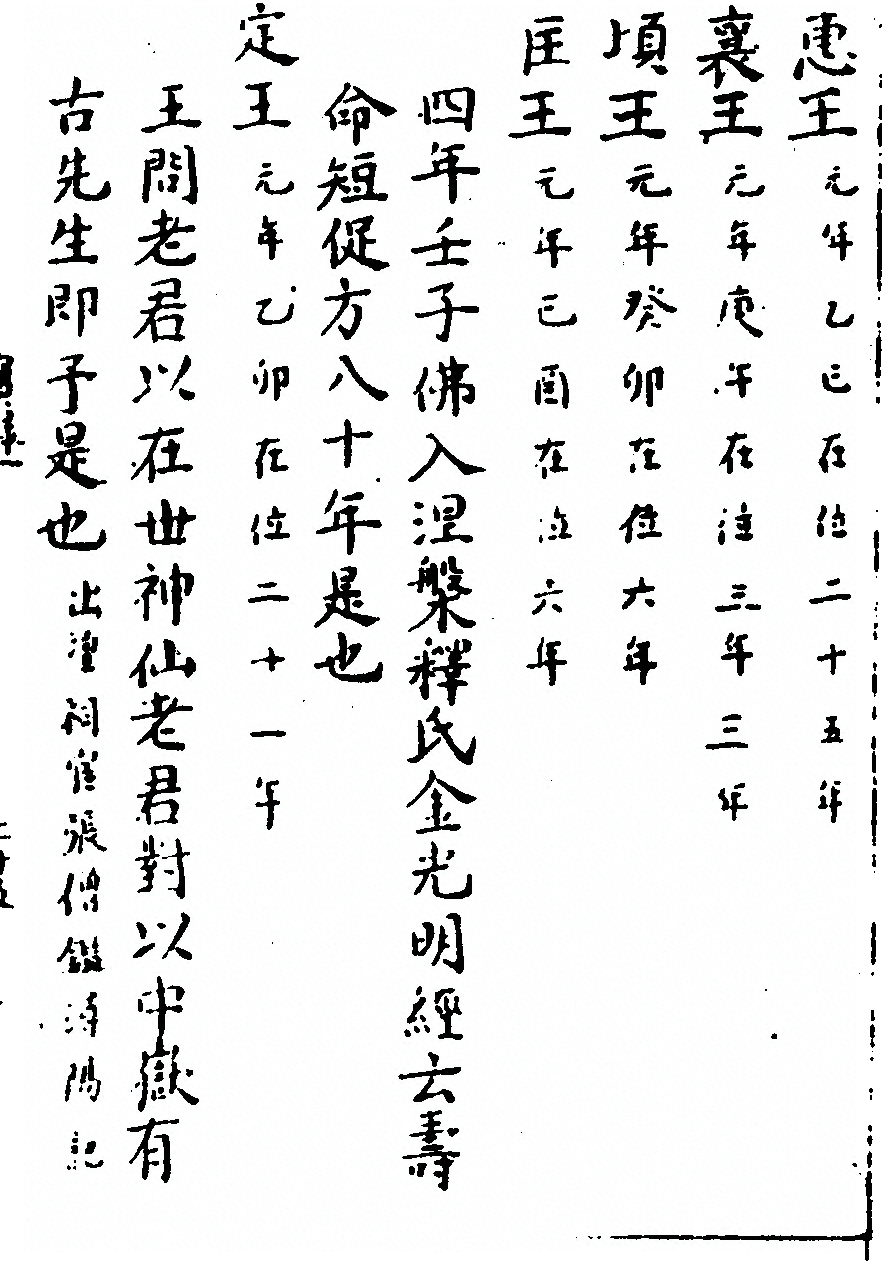 惠王元年乙巳在位二十五年
襄王元年庚午在位三年三年
頃王元年癸卯在位六年
匡王元年己酉在位六年
四年壬子佛入涅槃釋氏金光明經云壽
命短促方八十年是也
定王元年乙卯在位二十一年
王問老君以在世神仙老君對以中嶽有
古先生即予是也出瀘祠官張僧鑑潯陽記